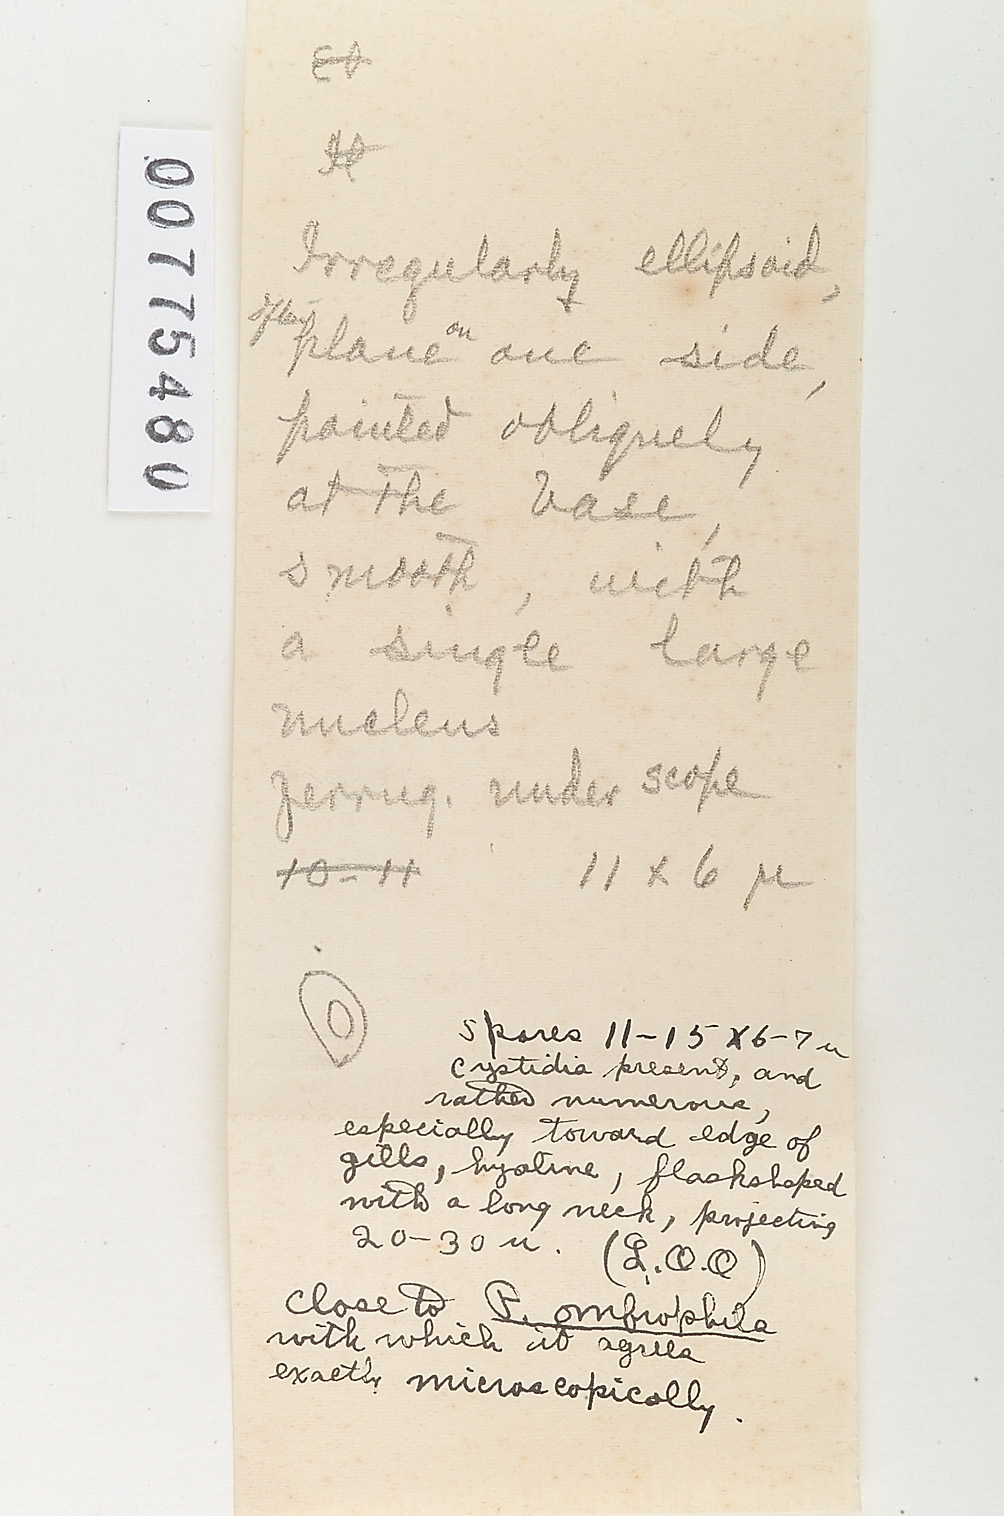 00775480
Irregularly ellipsoid,
often plane on one side,
pointed obliquely
at the base,
smooth, with
a single large
nucleus
ferrug. under scope
10-11 11 x 6 µ
spores 11-15 x 6-7 u
cystidia present, and
rather numerous,
especially toward edge of
gills, hyaline, flaskshaped
with a long neck, projecting
20-30 u. (L.O.O)
close to P. ombrophila
with which it agrees
exactly microscopically.